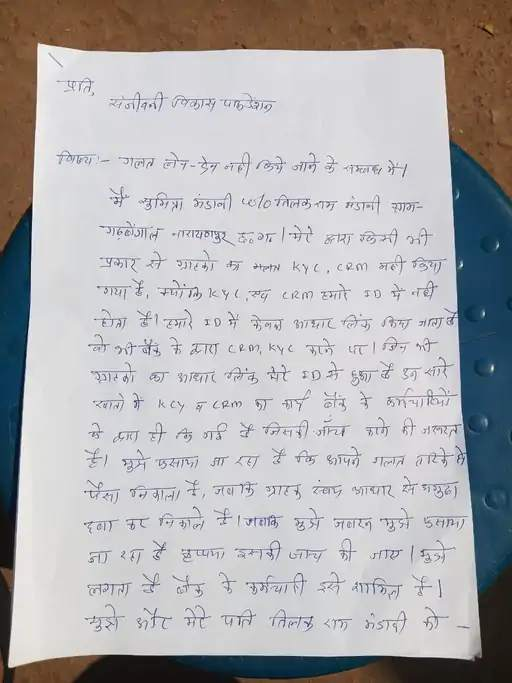 प्रति,
संजीवनी विकास फाउंडेशन
विषय:- गलत लेन-देन नही किये जाने के सम्बन्ध में।
मैं सुमित्रा मंडावी w/o तिलक राम मंडावी ग्राम-
गढ़बेंगाल नारायणपुर छ.ग.। मेरे द्वारा किसी भी
प्रकार से ग्राहको का गलत KYC, CRM नही किया
गया है, क्योंकि KYC, एवं CRM हमारे ID में नही
होता है। हमारे ID में केवल आधार लिंक किया जाता है
वो भी बैंक के द्वारा CRM, KYC करने पर। जिन भी
ग्राहको का आधार लिंक मेरे ID से हुआ है उन सारे
खातो में KCY व CRM का कार्य बैंक के कर्मचारियों
के द्वारा ही कि गई है जिसकी जाँच करने की जरूरत
है। मुझे फसाया जा रहा है कि आपने गलत तरिके से
पैसा निकाला है, जबकि ग्राहक स्वयं आधार से अंगुठा
दबा कर निकाले है। जबकि मुझे जबरन मुझे फसाया
जा रहा है कृप्या इसकी जांच की जाए। मुझे
लगता है बैंक के कर्मचारी इसे शामिल है।
मुझे और मेरे पति तिलक राम मंडावी को -